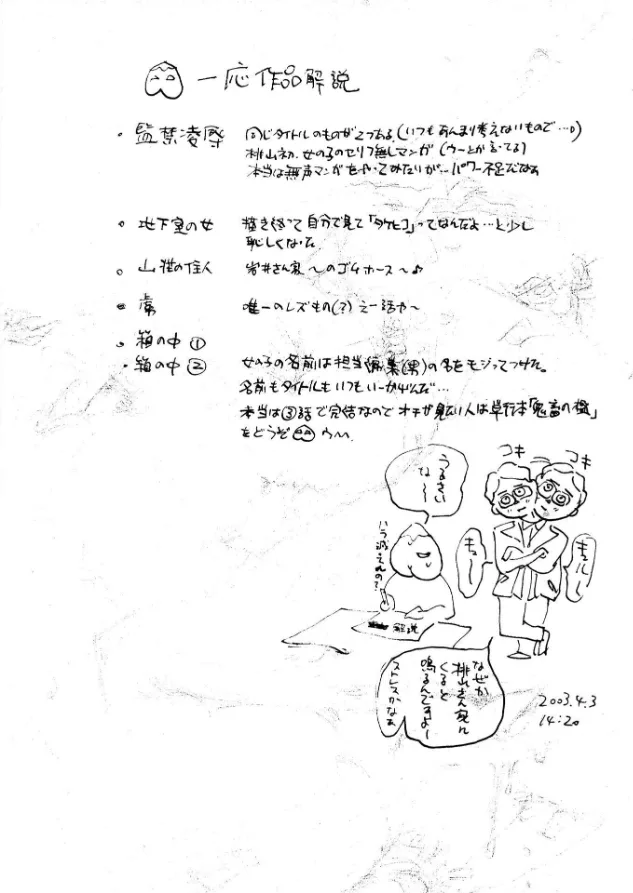 一応作品解説
・監禁凌辱 同じタイトルのものが2つある(いつもあんまり考えないもので…。)
桃山初、女の子のセリフ無しマンガ(ウーとか言ってる)
本当は無声マンガをやってみたいが…パワー不足だなぁ
・地下室の女 描き終って自分で見て「タケヒコ」ってなんだよ…と少し
恥しくなった。
。山荘の住人 岩井さん家〜のゴムホース〜♪
唯一のレズもの(?)え一話か〜
。箱の中①
・箱の中② 女の子の名前は担当編集(男)の名をモジってつけた。
名前もタイトルもいつもいーかげんだ…
本当は③話で完結なのでオチが見たい人は単行本「鬼畜の檻」
をどうぞ ウ〜
コキ コキ
うるさい
な〜
ハラ減ってんの?
キュー
キュルル
解説
なぜか
桃山さん家に
くると
鳴るんですよー
ストレスかなぁ
2003.4.3
14:20